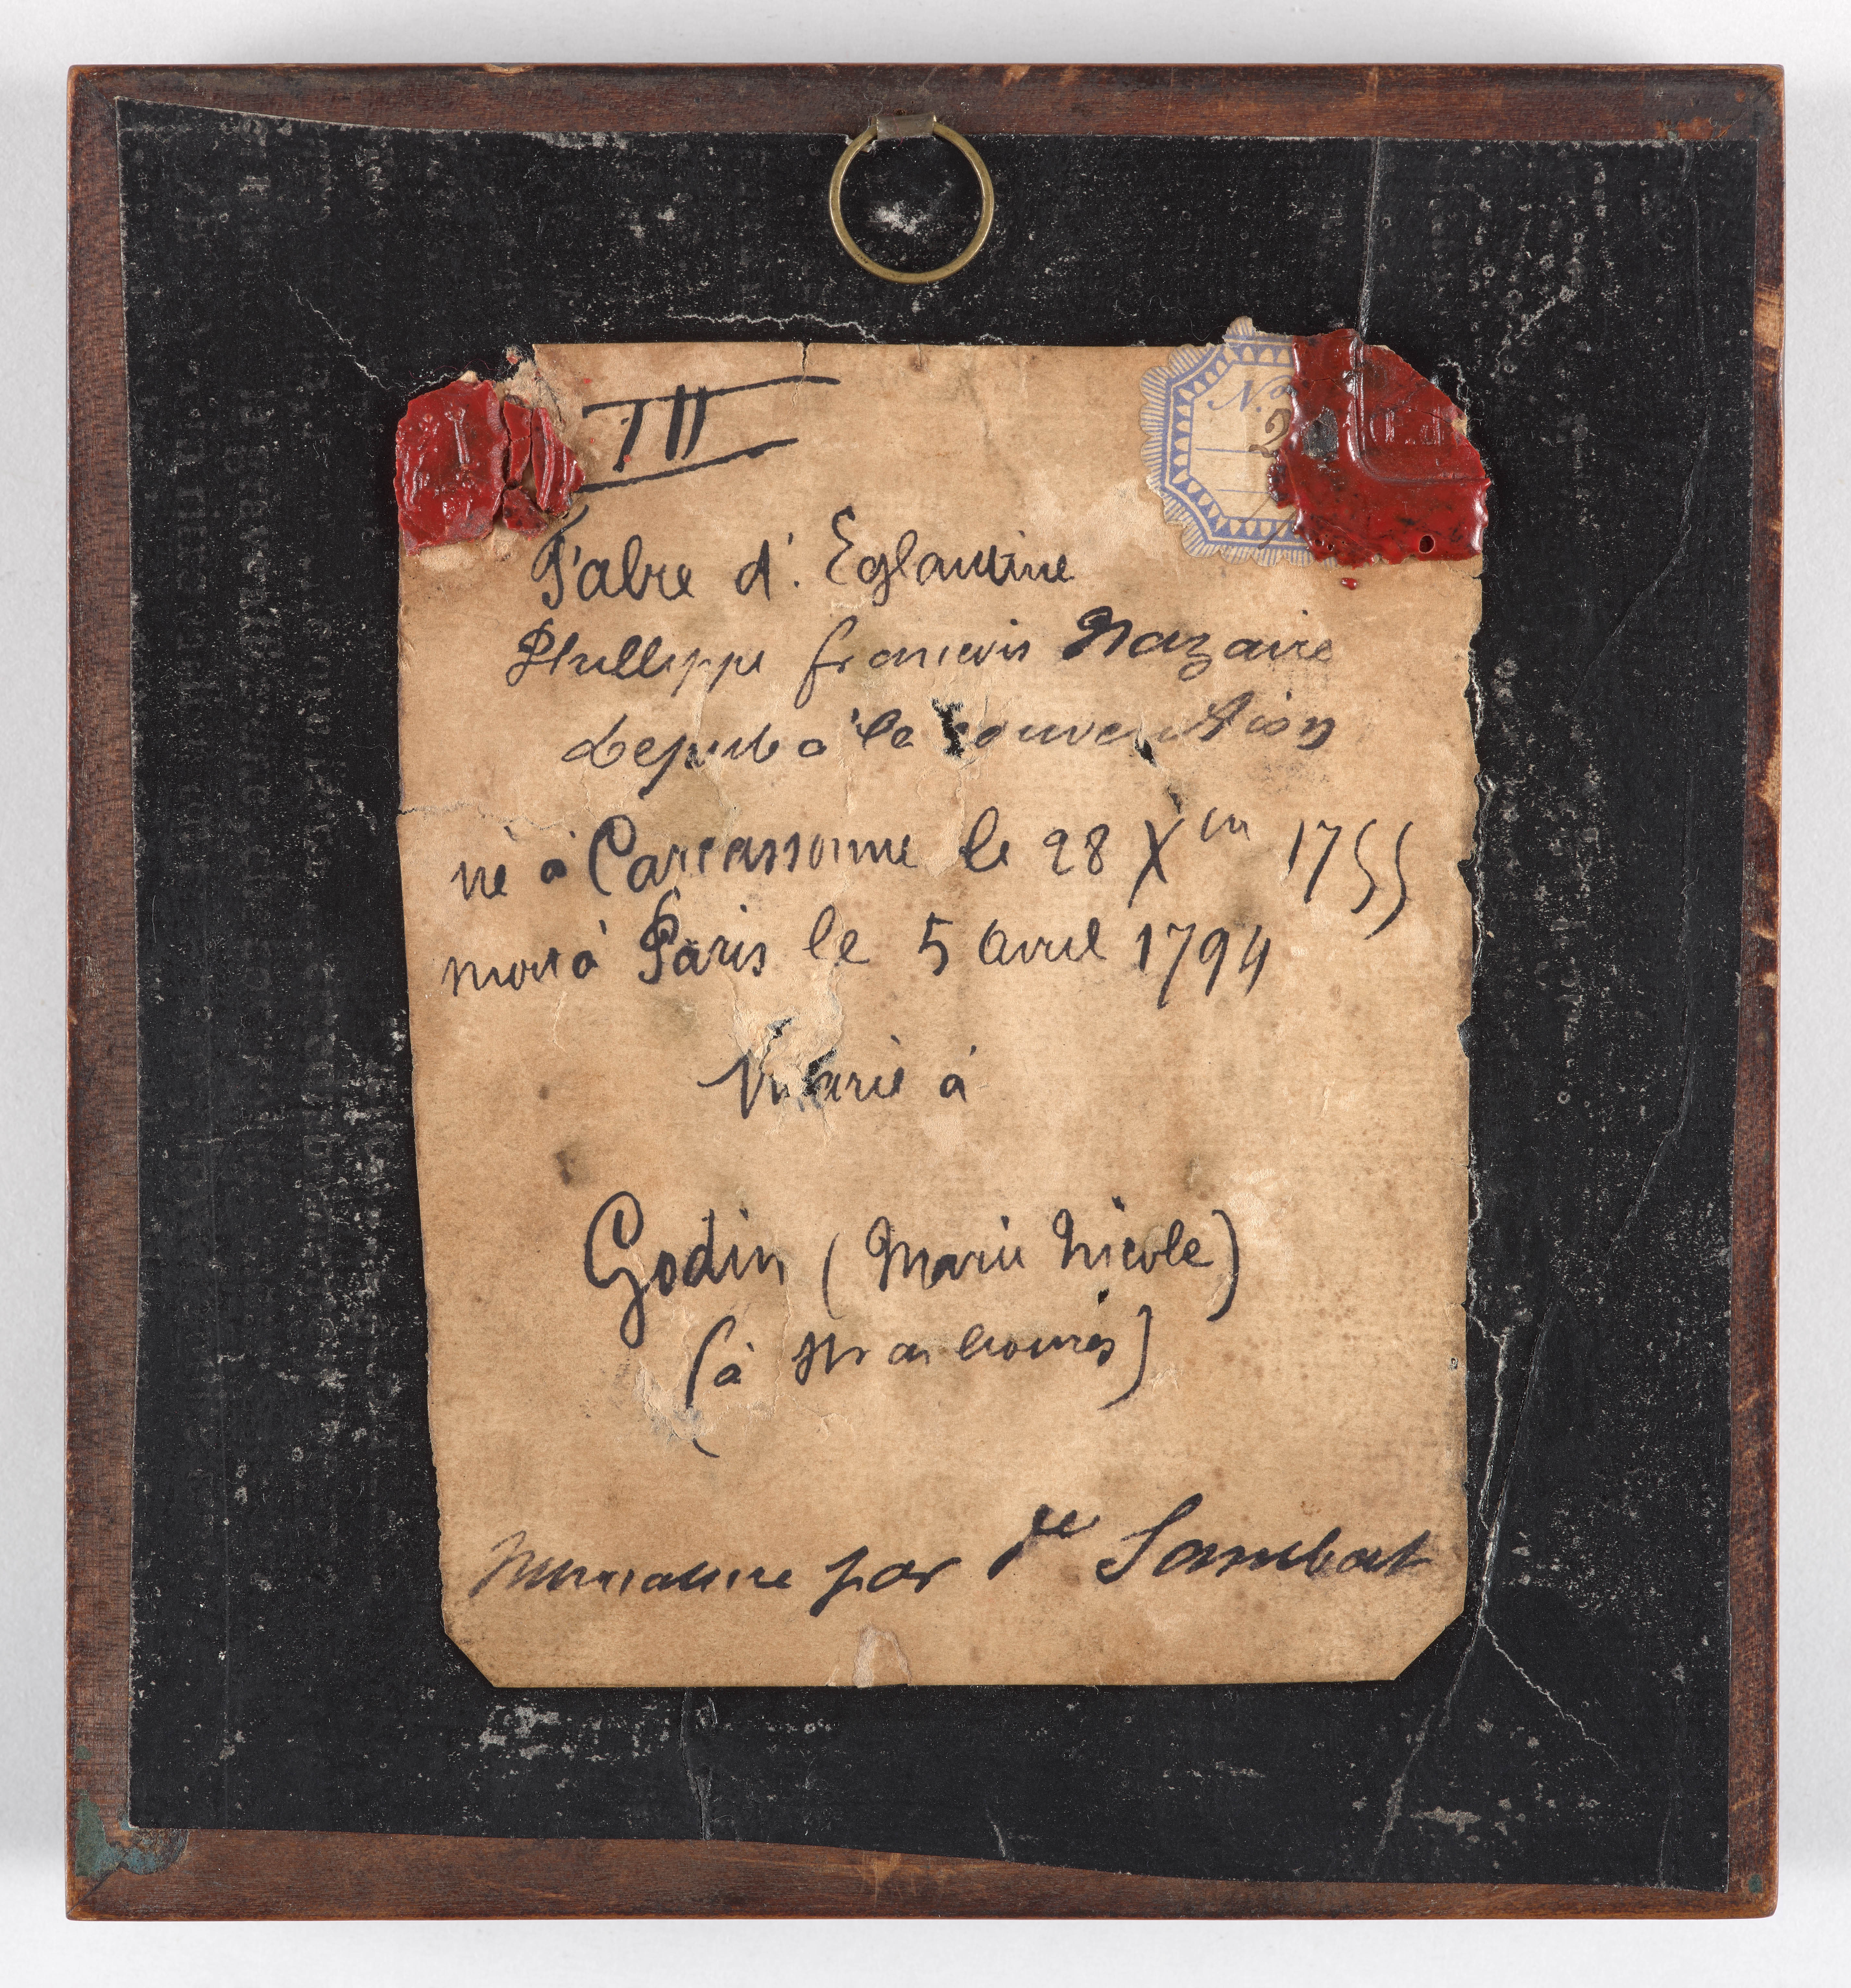 III
No
2
Fabre d'. Eglantine
Phillippe francois Nazaire
depute à la convention
né à Carcassonne le 28 Xbre 1755
mort à Paris le 5 avril 1794
Marié à
Godin (Marie Nicole)
(à
miniature par Sambat